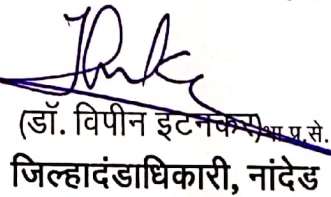 (डॉ. विपीन इटनकर) भा.प्र.से.
जिल्हादंडाधिकारी, नांदेड